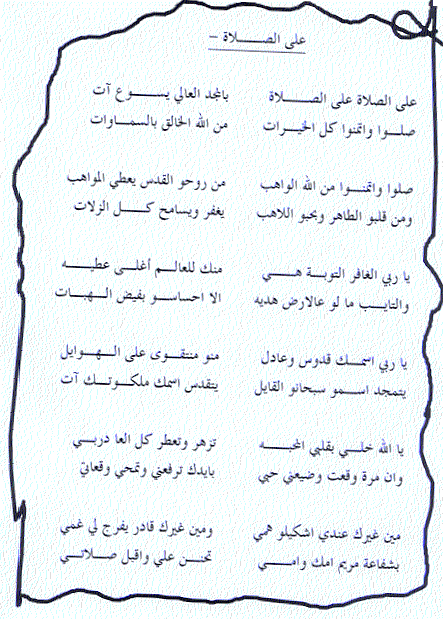 على الصلاة –
على الصلاة على الصلاة بالمجد العالي يسوع آت
صلوا واتمنوا كل الخيرات من الله الخالق بالسماوات
صلوا واتمنوا من الله الواهب من روحو القدس يعطي المواهب
ومن قلبو الطاهر وبحبو اللاهب يغفر ويسامح كل الزلات
يا ربي الغافر التوبة هي منك للعالم أغلى عطيه
والتايب ما لو عالارض هديه الا احساسو بفيض الهبات
يا ربي اسمك قدوس وعادل منو منتقوى على الهوايل
يتمجد اسمو سبحانو القايل يتقدس اسمك ملكوتك آت
يا الله خلي بقلبي المحبه تزهر وتعطر كل العا دربي
وان مرة وقعت وضيعني حبي بايدك ترفعني وتمحي وقعاتي
مين غيرك عندي اشكيلو همي ومين غيرك قادر يفرج لي غمي
بشفاعة مريم امك وامي تحنن علي واقبل صلاتي